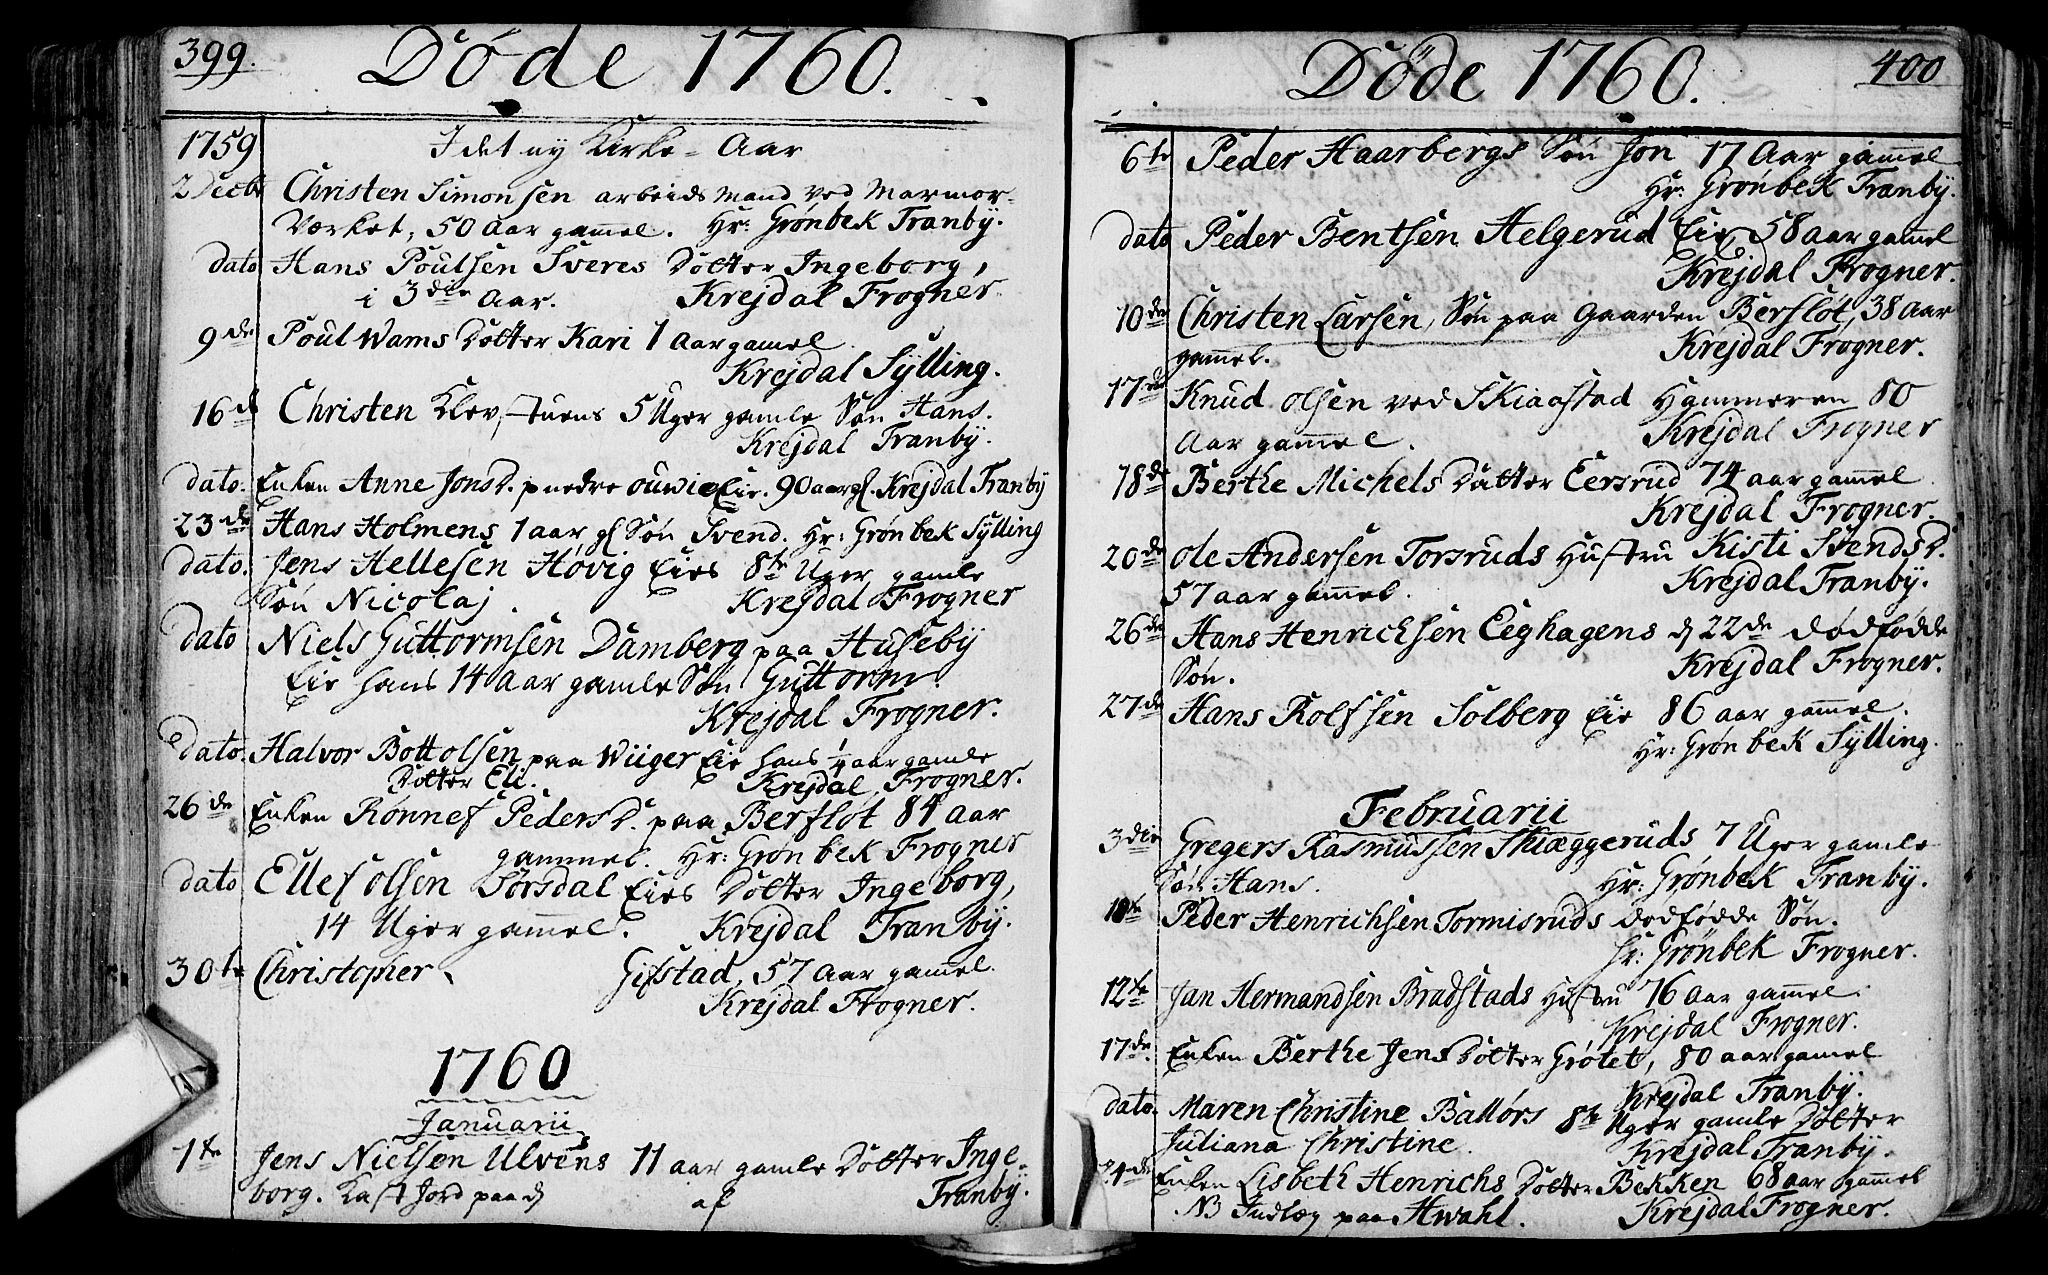 399.
Döde 1760.
1759
I det ny Kirke-Aar
2 Decbr Christen Simonsen arbeids Mand ved Marmor-
Værket, 50 Aar gam̄el. Hr: Grönbek Tranby.
dato Hans Poulsen Sveres Dotter Ingeborg,
i 3die Aar. Krejdal Frogner.
9de Poul Wams Dotter Kari 1 Aar gamel
Krejdal Sylling.
16de Christen Klevstuens 5 Uger gamle Søn Hans.
Krejdal Tranby.
dato. Enken Anne JonsD. nedre ouwie Eie. 90 aar gl. Krejdal Tranby
23de Hans Holmens 1 aar gl Søn Svend. Hr: Grönbek Sylling
dato. Jens Hellesen Høvig Eies 8te Uger gamle
Søn Nicolaj. Krejdal Frogner
dato Niels Guttormsen Damberg paa Huseby
Eie hans 14 Aar gamle Søn Guttorm.
Krejdal Frogner.
dato. Halvor Bottolsen paa Wiiger Eie hans 1/4 aar gamle
Dotter Eli. Krejdal Frogner.
26de Enken Rønnef PedersD. paa Berfløt 84 aar
gammel. Hr: Grönbek Frogner
dato Ellef olsen Sørsdal Eies Dotter Ingeborg,
14 Uger gam̄el. Krejdal Tranby.
30te Christopher Gifstad, 57 Aar gam̄el.
Krejdal Frogner.
1760
Januarii
1te Jens Nielsen Ulvens 11 aar gamle Dotter Inge-
borg. Kast Jord paa af Tranby.
400
Döde 1760.
6te Peder Haarbergs Søn Jon 17 Aar gam̄el
Hr: Grönbek Tranby.
dato Peder Bentsen Helgerud Eie 58 aar gam̄el
Krejdal Frogner.
10de Christen Larsen, Søn paa Gaarden Berfløt, 38 Aar
gam̄el. Krejdal Frogner.
17de Knud olsen ved Skiaastad Hammeren 80
Aar gam̄el. Krejdal Frogner
18de Berthe Michels Datter Eersrud 74 aar gam̄el
Krejdal Frogner.
20de Ole Andersen Torsruds Hustru Kisti SvendsD.
57 aar gam̄el. Krejdal Tranby.
26de Hans Henrichsen Eeghagens 22de dødfødde
Søn. Krejdal Frogner.
27de Hans Rolfsen Solberg Eie 86 aar gam̄el.
Hr: Grönbek Sylling.
Februarii
3die Gregers Rasmudsen Skiæggeruds 7 Uger gamle
Søn Hans. Hr: Grönbek Tranby.
10te Peder Henrichsen Tormisruds dødfødde Søn.
Hr: Grönbek Frogner.
12te Jan Hermandsen Bradstads Hustru 76 Aar gam̄el.
Krejdal Frogner.
17de Enken Berthe Jens Dotter Grötet, 80 aar gamel
Krejdal Tranby.
dato. Maren Christine Ballørs 8te Uger gamle Dotter
Juliana Christine. Krejdal Tranby.
24de Enken Lisbeth Henrichs Dotter Bekken 68 aar gam̄el
NB Indlæg paa Hwahl. Krejdal Frogner.